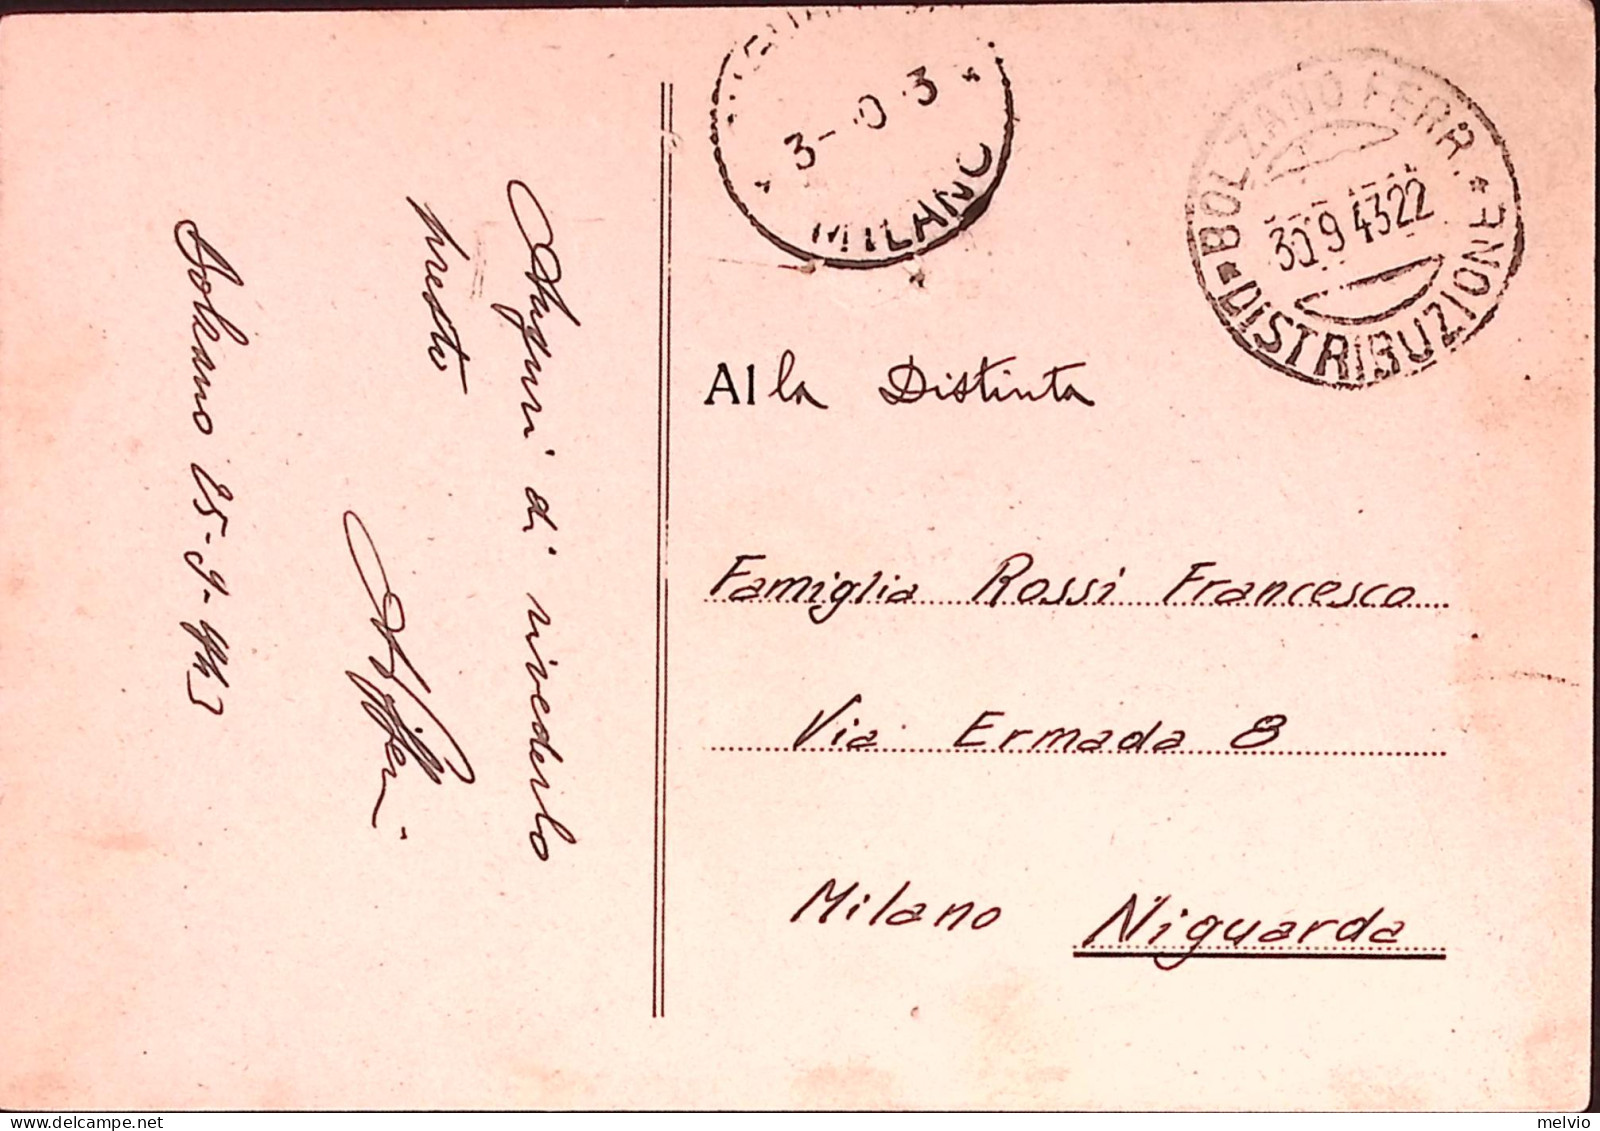 Auguri di rivederlo
presto
Bolzano 25-9-943
MILANO
BOLZANO FERR.
30.9 43 22
DISTRIBUZIONE
Alla Distinta
Famiglia Rossi Francesco
Via Ermada 8
Milano Niguarda
melvio